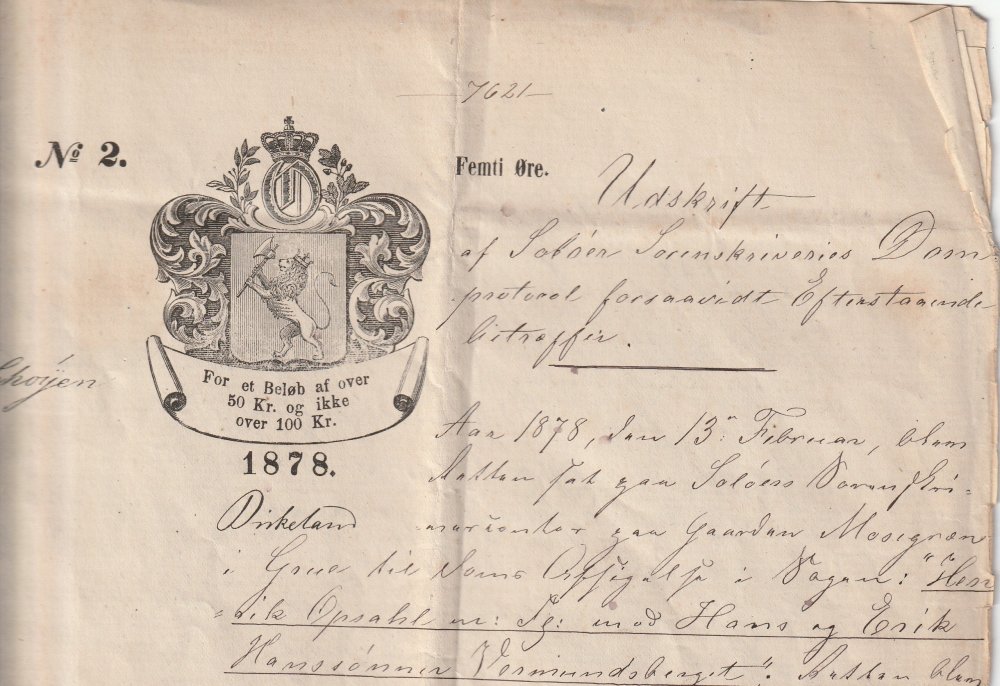 7621
No 2.
Femti Øre.
Udskrift
af Solöer Sorenskriveries Dom
protocol forsaavidt Efterstaaende
betræffer.
For et Beløb af over
50 Kr. og ikke
over 100 Kr.
1878.
Aar 1878, den 13de Februar, blev
Retten sat paa Solöers Sorenskri-
vercontor paa Gaarden Mosegræn
i Grue til Doms Afsigelse i Sagen: "Hen
rik Opsahl m: Fl: mod Hans og Erik
Hanssønner Vermundsberget". Retten blev